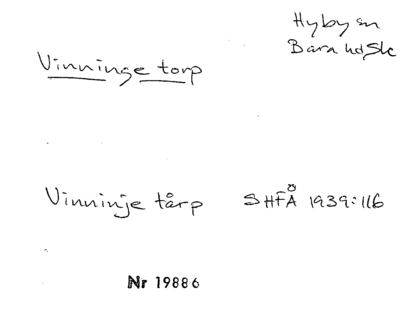 Hyby sn
Bara hd Sk
Vinninge torp
Vinninje tårp SHFÅ 1939:116
Nr 19886